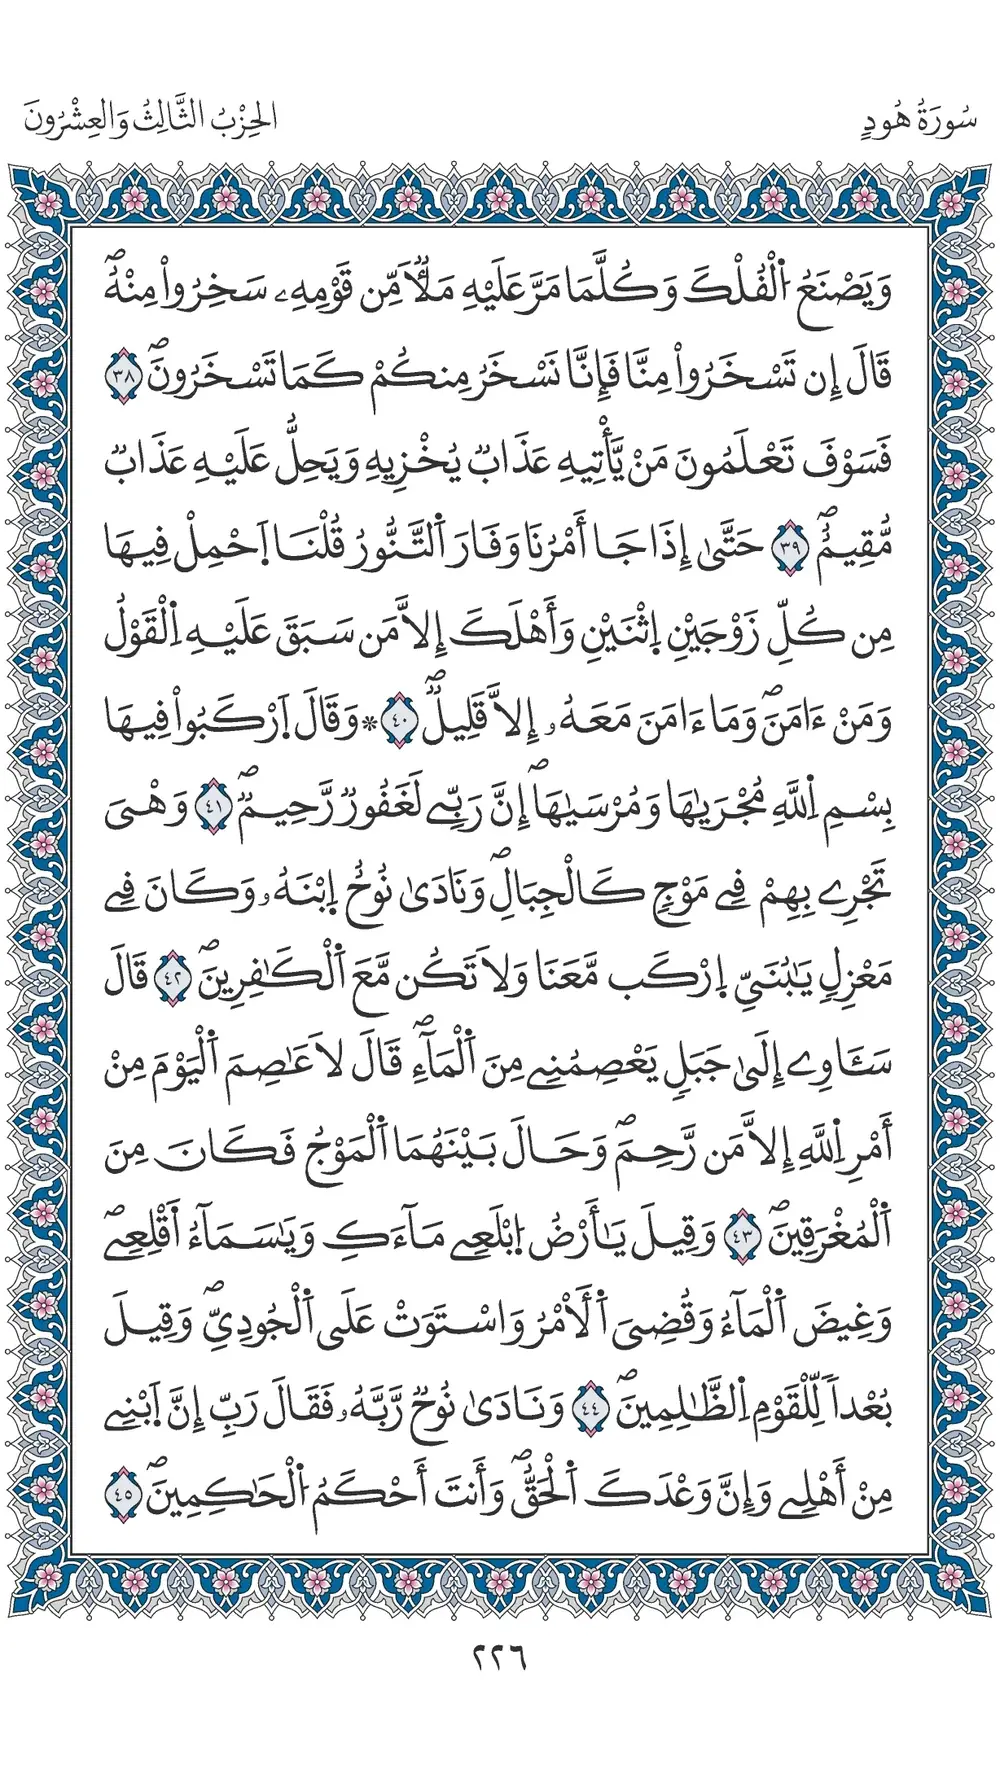 سُورَةُ هُودٍ
الحِزْبُ الثَّالِثُ وَالعِشْرُونَ
وَيَصْنَعُ اُ۬لْفُلْكَ وَكُلَّمَا مَرَّ عَلَيْهِ مَلَأٞ مِّن قَوْمِهِۦ سَخِرُواْ مِنْهُۖ
قَالَ إِن تَسْخَرُواْ مِنَّا فَإِنَّا نَسْخَرُ مِنكُمْ كَمَا تَسْخَرُونَۖ ٣٨
فَسَوْفَ تَعْلَمُونَ مَنْ يَّأْتِيهِ عَذَابٞ يُخْزِيهِ وَيَحِلُّ عَلَيْهِ عَذَابٞ
مُّقِيمٌۖ ٣٩ حَتَّىٰ إِذَا جَا أَمْرُنَا وَفَارَ اَ۬لتَّنُّورُ قُلْنَا اَ۪حْمِلْ فِيهَا
مِن كُلِّ زَوْجَيْنِ اِ۪ثْنَيْنِ وَأَهْلَكَ إِلاَّ مَن سَبَقَ عَلَيْهِ اِ۬لْقَوْلُ
وَمَنْ ءَامَنَۖ وَمَا ءَامَنَ مَعَهُۥ إِلاَّ قَلِيلٞۖ ٤٠ ۞ وَقَالَ اَ۪رْكَبُواْ فِيهَا
بِسْمِ اِ۬للَّهِ مُجْر۪يٰهَا وَمُرْسَيٰهَاۖ إِنَّ رَبِّے لَغَفُورٞ رَّحِيمٞۖ ٤١ وَهْىَ
تَجْرِے بِهِمْ فِے مَوْجٖ كَالْجِبَالِۖ وَنَادَىٰ نُوحٌ اِ۪بْنَهُۥ وَكَانَ فِے
مَعْزِلٖ يَٰبُنَيِّ اِ۪رْكَب مَّعَنَا وَلَا تَكُن مَّعَ اَ۬لْكَٰفِرِينَۖ ٤٢ قَالَ
سَـَٔاوِے إِلَىٰ جَبَلٖ يَعْصِمُنِے مِنَ اَ۬لْمَآءِۖ قَالَ لَا عَاصِمَ اَ۬لْيَوْمَ مِنْ
أَمْرِ اِ۬للَّهِ إِلاَّ مَن رَّحِمَۖ وَحَالَ بَيْنَهُمَا اَ۬لْمَوْجُ فَكَانَ مِنَ
اَ۬لْمُغْرَقِينَۖ ٤٣ وَقِيلَ يَٰأَرْضُ اُ۪بْلَعِے مَآءَكِ وَيَٰسَمَآءُ اَ۬قْلِعِےۖ
وَغِيضَ اَ۬لْمَآءُ وَقُضِىَ اَ۬لَامْرُ وَاسْتَوَتْ عَلَى اَ۬لْجُودِيِّۖ وَقِيلَ
بُعْداٗ لِّلْقَوْمِ اِ۬لظَّٰلِمِينَۖ ٤٤ وَنَادَىٰ نُوحٞ رَّبَّهُۥ فَقَالَ رَبِّ إِنَّ اَ۪بْنِے
مِنْ أَهْلِے وَإِنَّ وَعْدَكَ اَ۬لْحَقُّۖ وَأَنتَ أَحْكَمُ اُ۬لْحَٰكِمِينَۖ ٤٥
٢٢٦